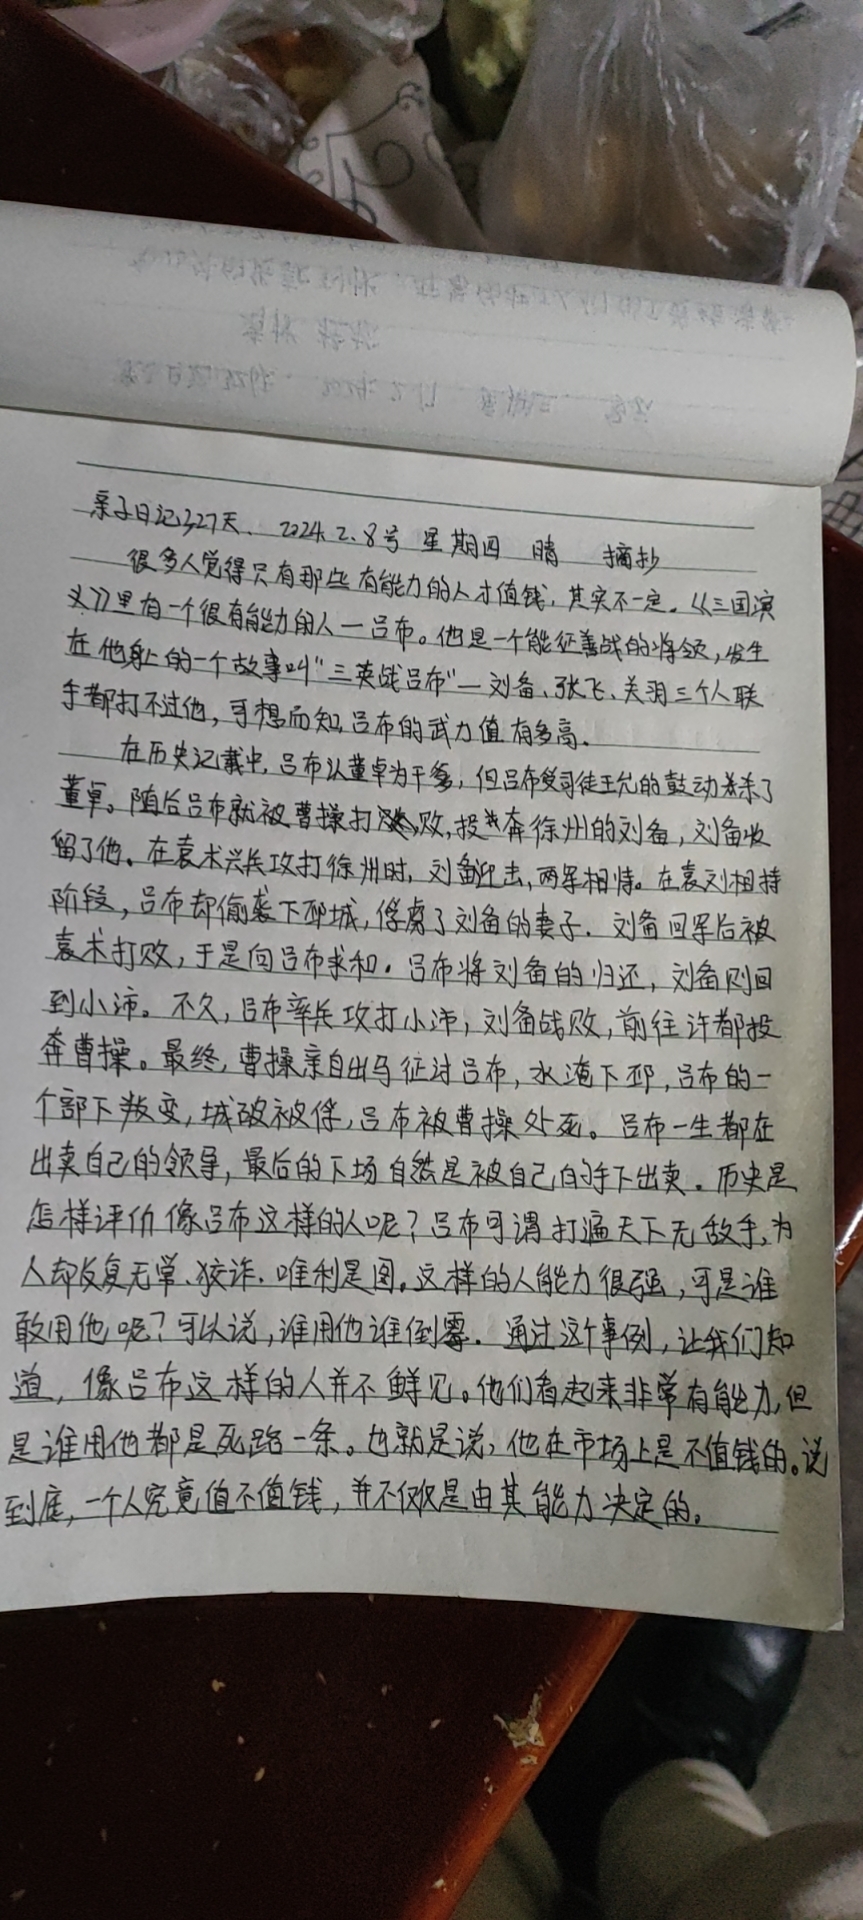 亲子日记327天、2024.2.8号 星期四 晴 摘抄
很多人觉得只有那些有能力的人才值钱,其实不一定。《三国演
义》里有一个很有能力的人一吕布。他是一个能征善战的将领,发生
在他身上的一个故事叫"三英战吕布"—刘备、张飞、关羽三个人联
手都打不过他,可想而知,吕布的武力值有多高。
在历史记载中,吕布认董卓为干爹,但吕布受司徒王允的鼓动杀了
董卓。随后吕布就被曹操打败,投奔徐州的刘备,刘备收
留了他。在袁术兴兵攻打徐州时,刘备迎击,两军相恃。在袁刘相持
阶段,吕布却偷袭下邳城,俘虏了刘备的妻子.刘备回军后被
袁术打败,于是向吕布求和。吕布将刘备的归还,刘备则回
到小沛。不久,吕布率兵攻打小沛,刘备战败,前往许都投
奔曹操。最终,曹操亲自出马征讨吕布,水淹下邳,吕布的一
个部下叛变,城破被俘,吕布被曹操处死。吕布一生都在
出卖自己的领导,最后的下场自然是被自己的手下出卖.历史是
怎样评价像吕布这样的人呢?吕布可谓打遍天下无敌手,为
人却反复无常、狡诈、唯利是图。这样的人能力很强,可是谁
敢用他呢?可以说,谁用他谁倒霉.通过这个事例,让我们知
道,像吕布这样的人并不鲜见。他们看起来非常有能力,但
是谁用他都是死路一条。也就是说,他在市场上是不值钱的。说
到底,一个人究竟值不值钱,并不仅仅是由其能力决定的。